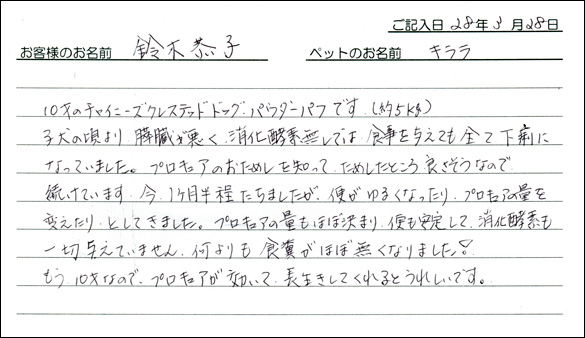 ご記入日 28年3月28日
お客様のお名前 鈴木恭子 ペットのお名前 キララ
10才のチャイニーズクレステッドドッグパウダーパフです。(約5kg)
子犬の頃より 膵臓が悪く、消化酵素無しでは、食事を与えても全て下痢に
なっていました。プロキュアのおためしを知って、ためしたところ良さそうなので
続けています。今、1ヶ月半程たちましたが、便がゆるくなったり、プロキュアの量を
変えたり、としてきました。プロキュアの量もほぼ決まり、便も安定して、消化酵素も
一切与えていません。何よりも食糞がほぼ無くなりました!
もう10才なので、プロキュアが効いて、長生きしてくれるとうれしいです。